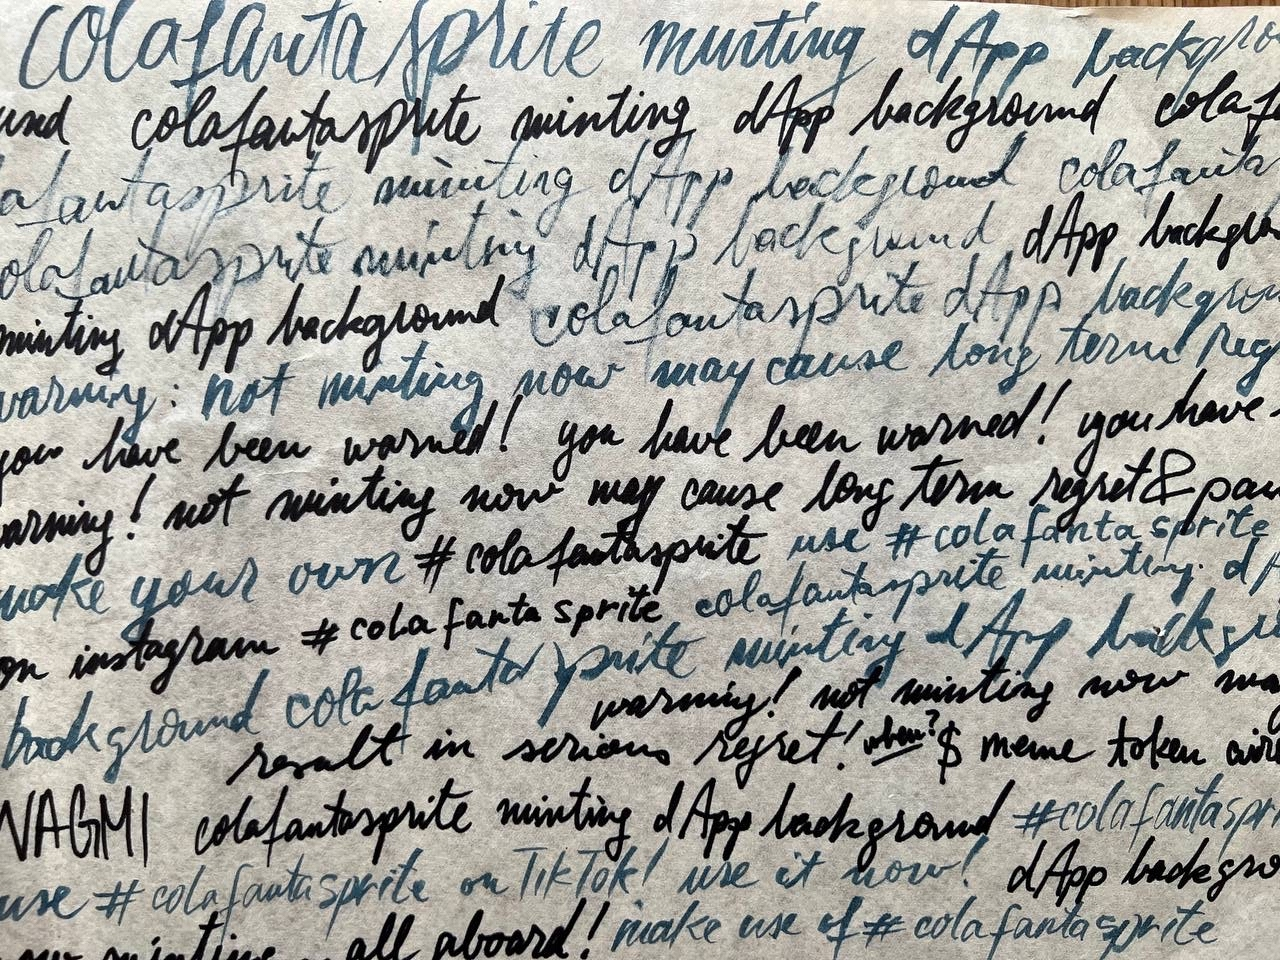 colafantasprite minting dApp backgro
und colafantasprite minting dApp background colaf
lafantasprite minting dApp background colafanta
olafantasprite minting dApp background dApp backgrou
minting dApp background colafantasprite dApp backgrou
warning: not minting now may cause long term reg
you have been warned! you have been warned! you have
warning! not minting now may cause long term regret & pain
make your own #colafantasprite use #colafantasprite
on instagram #colafantasprite colafantasprite minting dA
background colafantasprite minting dApp backgro
warning! not minting now may
result in serious regret! when? $ meme token air
WAGMI colafantasprite minting dApp background #colafantaspri
use #colafantasprite on TikTok! use it now! dApp backgro
minting all aboard! make use of #colafantasprite